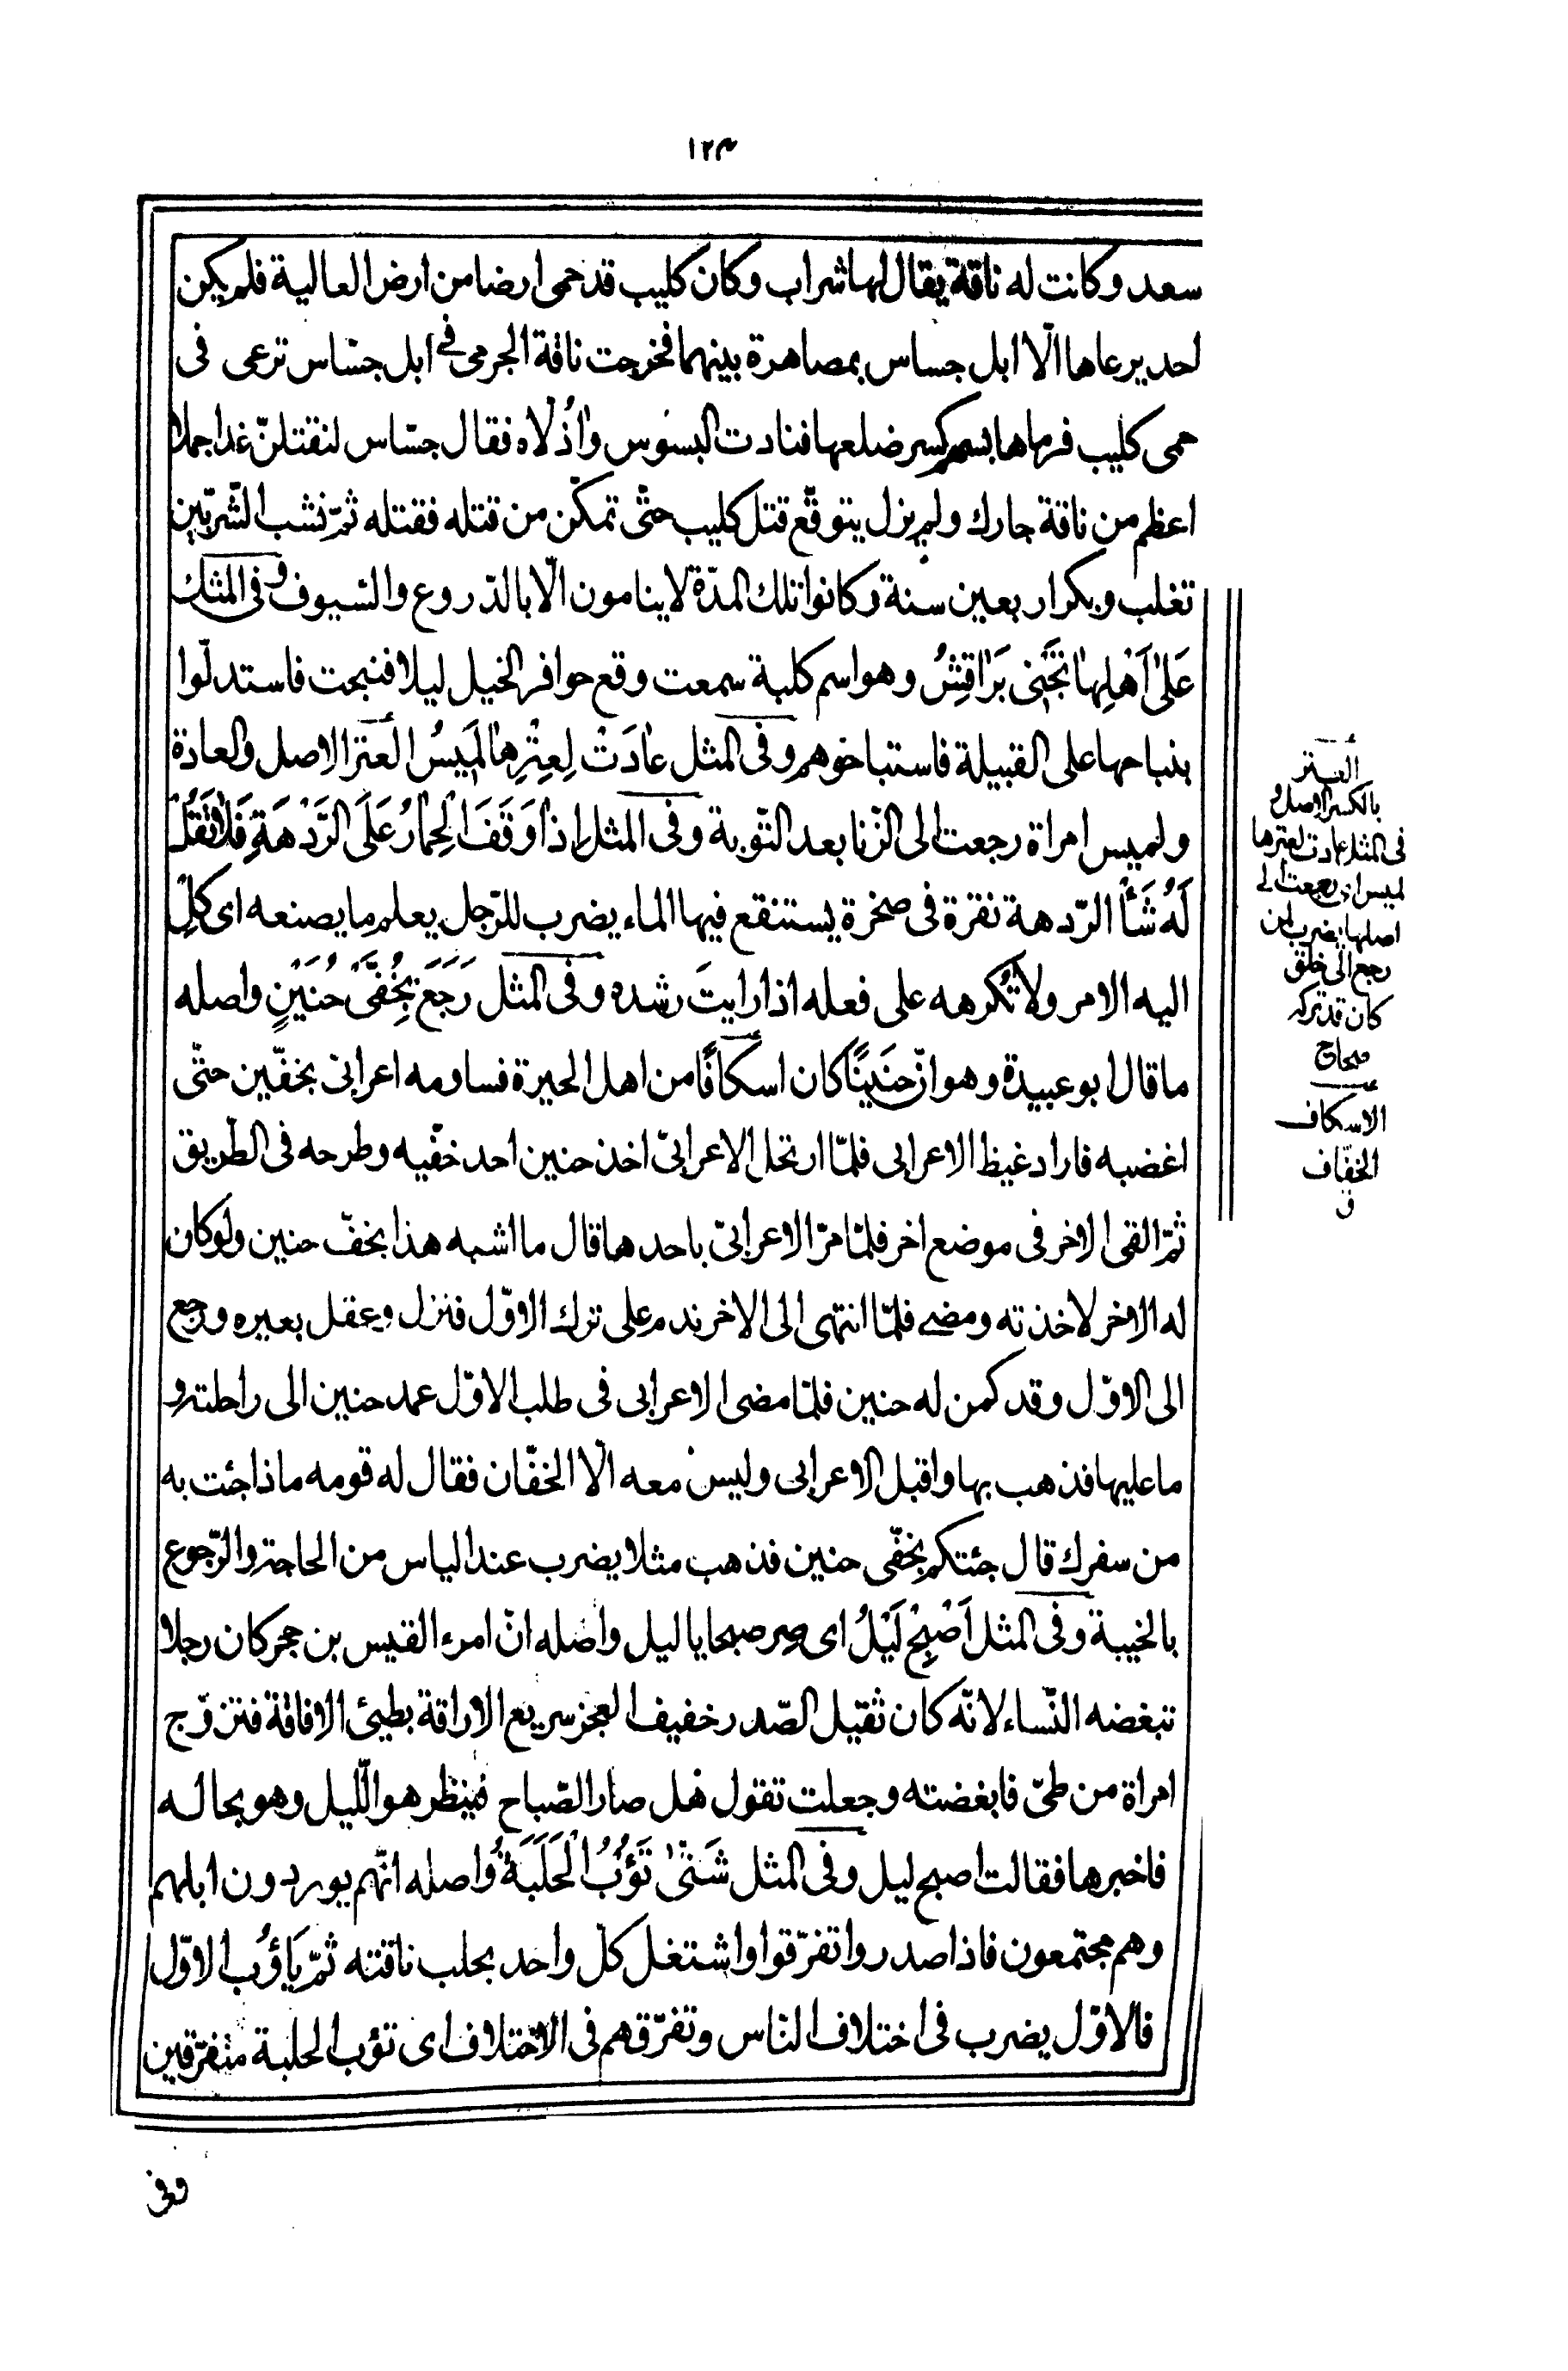 ١٢٣
سعد وكانت له ناقة يقال لها شراب وكان كليب قد حمى ارضا من ارض العالية فلم يكن
احد يرعاها الّا ابل جساس بمصاهرة بينهما فخرجت ناقة الجرمى فى ابل جسّاس ترعى فى
حمى كليب فرماها بسهم كسر ضلعها فنادت البسوس واذُلّاه فقال جسّاس لنقتلنّ غدا جملا
اعظم من ناقة جارك ولم يزل يتوقّع قتل كليب حتّى تمكّن من قتله فقتله ثمّ نشب الشّر بين
تغلب وبكر اربعين سنة وكانوا تلك المدّة لا ينامون الّا بالدّروع والسّيوف وفى المثل
عَلىٰ اَهْلِهاٰ تَجْنِى بَرٰاقِشُ وهو اسم كلبة سمعت وقع حوافر الخيل ليلا فنبحت فاستدلّوا
بنباحها على القبيلة فاستباحوهم وفى المثل عاٰدَتْ لِعِتْرِهاٰ لَمِيسُ العتر الاصل والعادة
ولميس امراة رجعت الى الزّنا بعد التّوبة وفى المثل اِذاٰ وَقَفَ الْحِمارُ عَلَى الرَّدْهَةِ فَلاٰ تَقُلْ
لَهُ شَأْ الرّدهة نقرة فى صخرة يستنقع فيها الماء يضرب للرّجل يعلم ما يصنعه اى كِلْ
اليه الامر ولا تُكرهه على فعله اذا رايتَ رشده وفى المثل رَجَعَ بِخُفَّىْ حُنَيْنٍ واصله
ما قال ابو عبيدة وهو انّ حنَينًا كان اسكافًا من اهل الحيرة فساومه اعرابىّ بخفّين حتّى
اغضبه فاراد غيظ الاعرابى فلمّا ارتحل الاعرابىّ اخذ حنين احد خفّيه وطرحه فى الطّريق
ثمّ القى الاخر فى موضع اخر فلمّا مرّ الاعرابىّ باحدهما قال ما اشبه هذا بخفّ حنين ولو كان
له الاخر لاخذته ومضى فلمّا انتهى الى الاخر ندم على ترك الاوّل فنزل وعقل بعيره ورجع
الى الاوّل وقد كمن له حنين فلمّا مضى الاعرابى فى طلب الاوّل عمد حنين الى راحلته و
ما عليها فذهب بها واقبل الاعرابى وليس معه الّا الخفّان فقال له قومه ماذا جئت به
من سفرك قال جئتكم بخفّى حنين فذهب مثلا يضرب عند الياس من الحاجة والرّجوع
بالخيبة وفى المثل اَصْبِحْ لَيْلُ اى صِر صبحا يا ليل واصله انّ امرء القيس بن حجر كان رجلا
تبغضه النّساء لانّه كان ثقيل الصّدر خفيف العجز سريع الاراقة بطيئ الافاقة فتزوّج
امراة من طىّ فابغضته وجعلت تقول هل صار الصّباح فينظر هو اللّيل وهو بحاله
فاخبرها فقالت اصبح ليل وفى المثل شَتّىٰ تَؤُبُ الْحَلَبَةُ واصله انّهم يوردون ابلهم
وهم مجتمعون فاذا صدروا تفرّقوا واشتغل كلّ واحد بحلب ناقته ثمّ يَاؤُب الاوّل
فالاوّل يضرب فى اختلاف النّاس وتفرّقهم فى الاختلاف اى تؤب الحلبة متفرّقين
وفى
العتر
بالكسر الاصل و
فى المثل عادت لعترها
لميس اى رجعت الى
اصلها يضرب لمن
رجع الى خلق
كان قد تركه
صحاح
الاسكاف
الخفّاف
ق